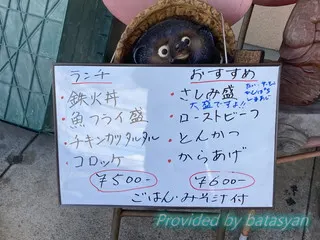 ランチ
・鉄火丼
・魚フライ盛
・チキンカツタルタル
・コロッケ
¥500-
おすすめ
・さしみ盛
大盛ですよ!!
・ローストビーフ
・とんかつ
・からあげ
¥600-
ごはん・みそ汁付
Provided by batasyan